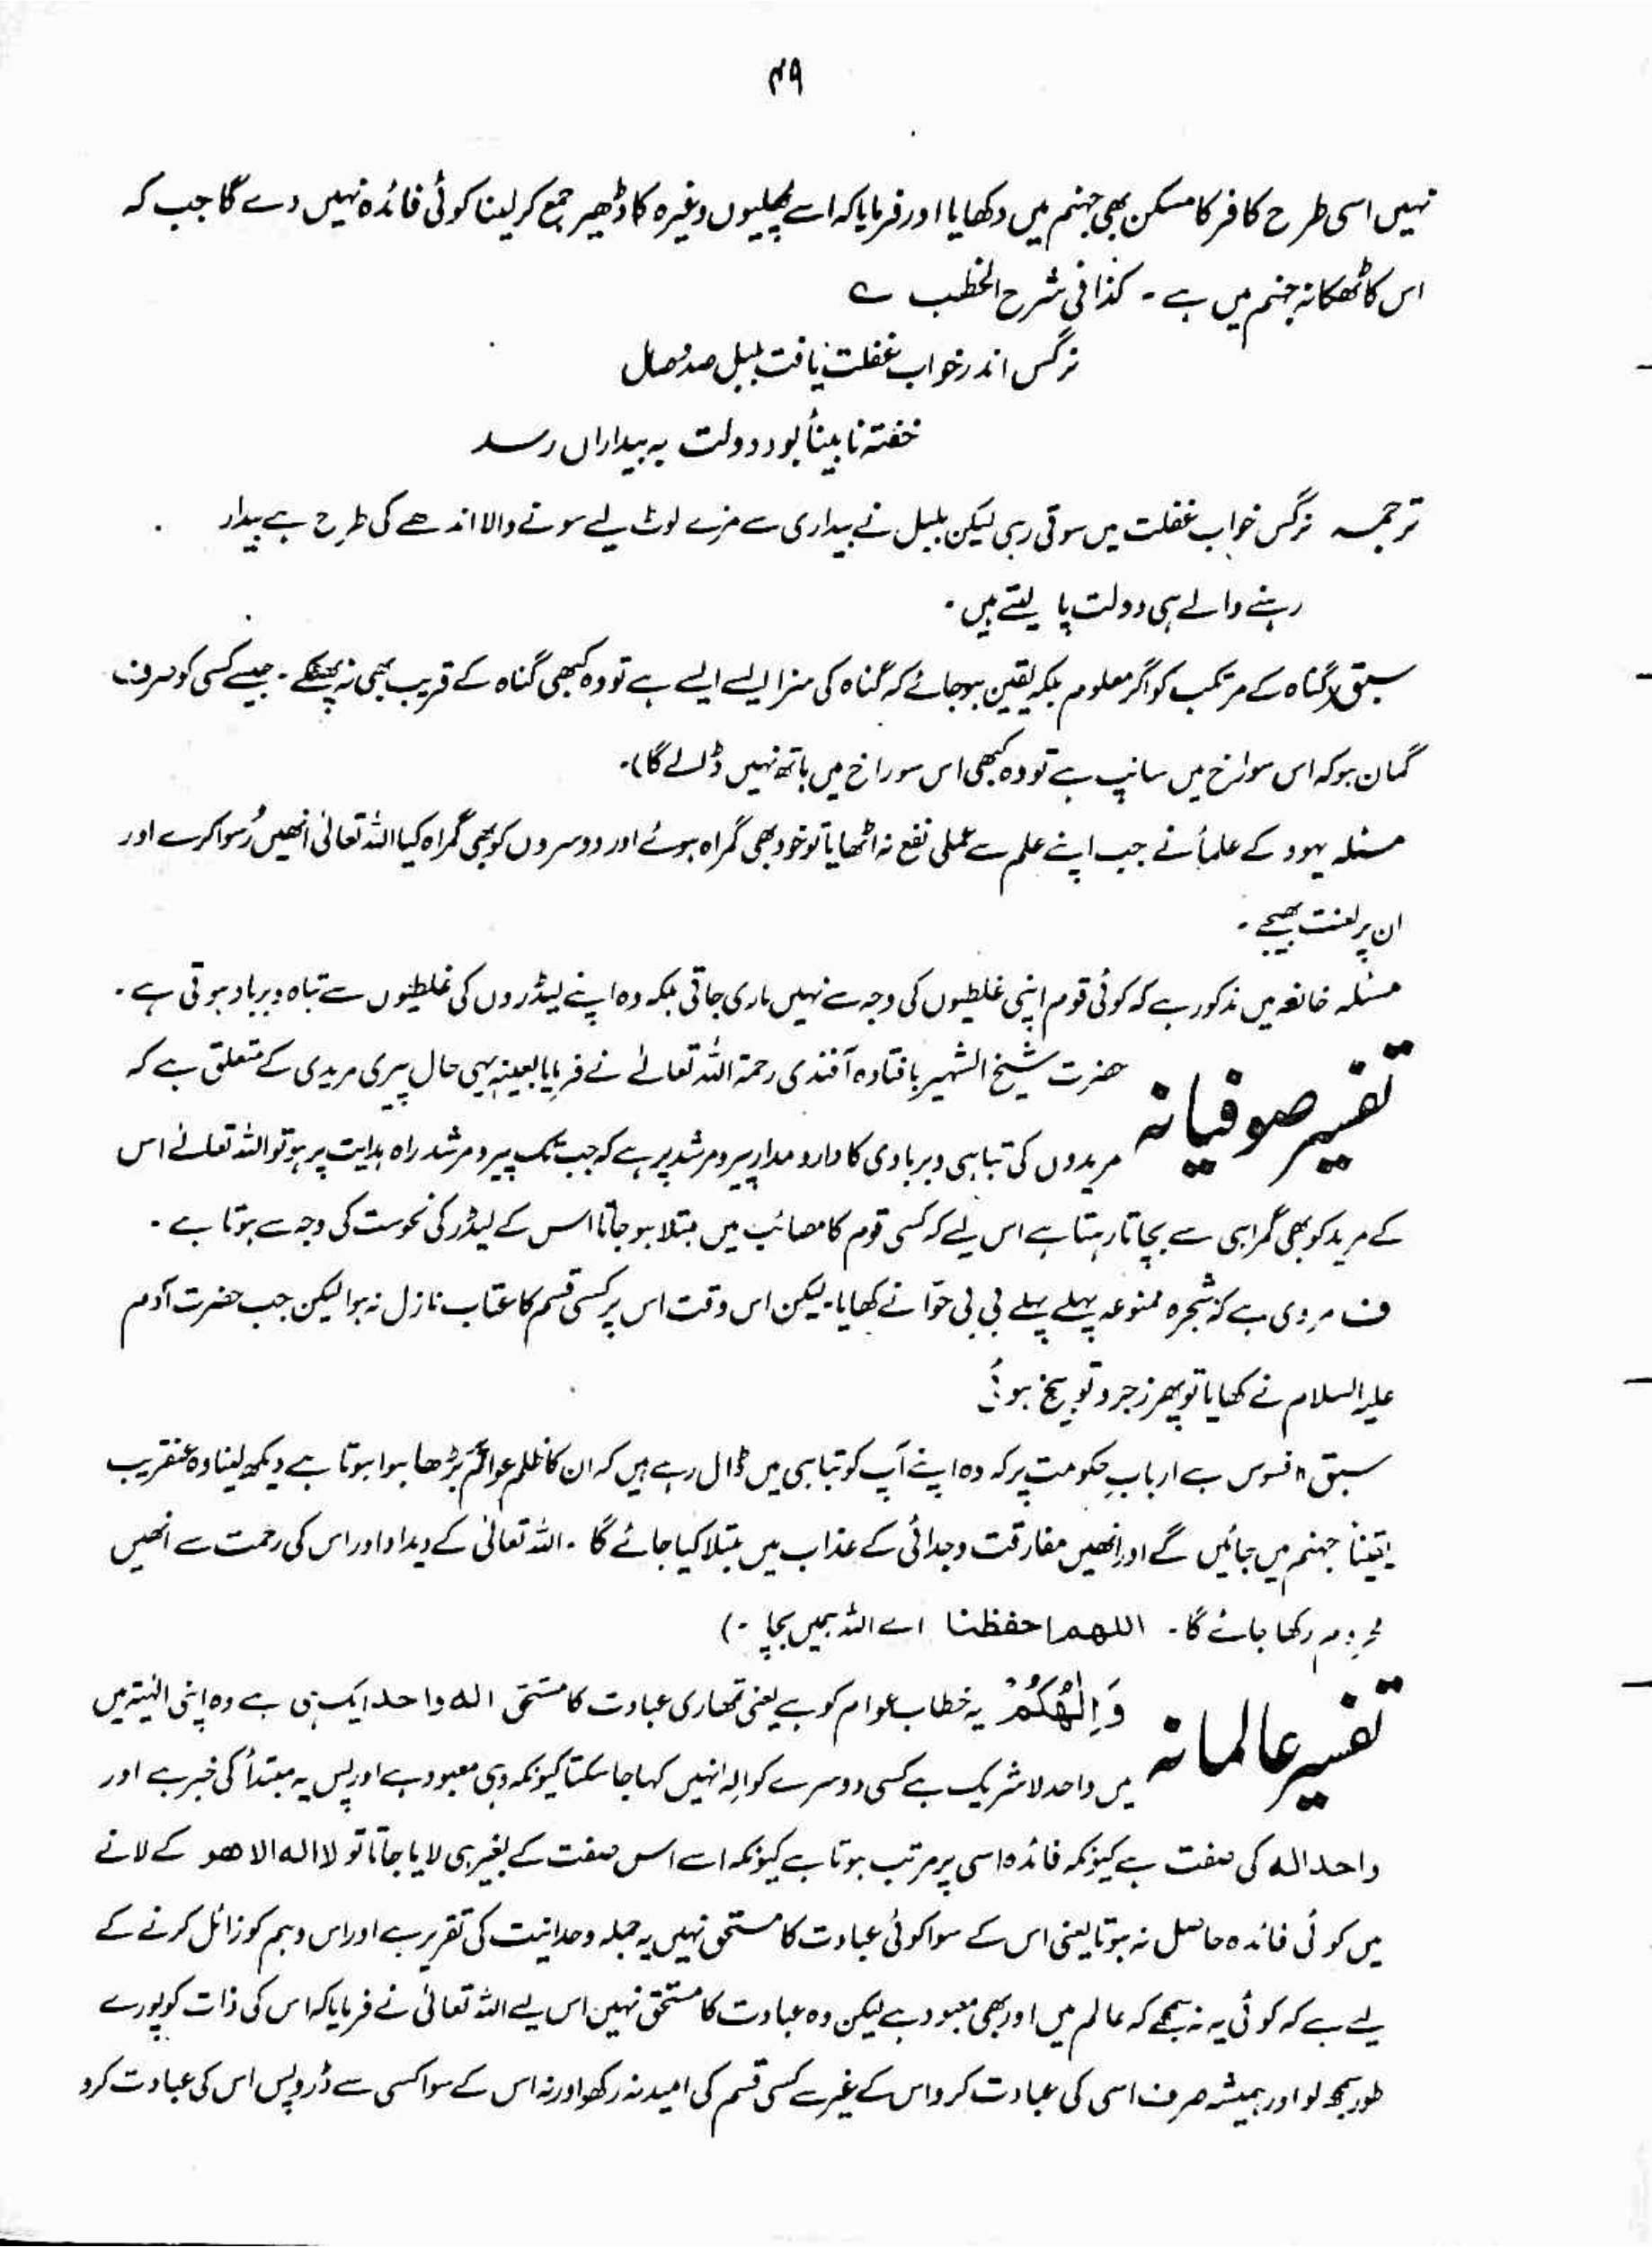 ۴۹
نہیں اسی طرح کافر کا مسکن بھی جہنم میں دکھایا اور فرمایا کہ اسے مچھلیوں وغیرہ کا ڈھیر جمع کر لینا کوئی فائدہ نہیں دے گا جب کہ
اس کا ٹھکانہ جہنم میں ہے۔ کذا فی شرح الخطب ے
نرگس اندر خواب غفلت یافت بلبل صد وصال
خفتہ نابینا بود دولت بہ بیداراں رسد
ترجمہ نرگس خواب غفلت میں سوتی رہی لیکن بلبل نے بیداری سے مزے لوٹ لیے سونے والا اندھے کی طرح ہے بیدار
رہنے والے ہی دولت پا لیتے ہیں۔
سبق (گناہ کے مرتکب کو اگر معلوم بلکہ یقین ہو جائے کہ گناہ کی سزا ایسے ایسے ہے تو وہ کبھی گناہ کے قریب بھی نہ پھٹکے۔ جیسے کسی کو صرف
گمان ہو کہ اس سوراخ میں سانپ ہے تو وہ کبھی اس سوراخ میں ہاتھ نہیں ڈالے گا)۔
مسئلہ یہود کے علماء نے جب اپنے علم سے عملی نفع نہ اٹھایا تو خود بھی گمراہ ہوئے اور دوسروں کو بھی گمراہ کیا اللہ تعالیٰ انھیں رُسوا کرے اور
ان پر لعنت بھیجے۔
مسئلہ میں مذکور ہے کہ کوئی قوم اپنی غلطیوں کی وجہ سے نہیں ماری جاتی بلکہ وہ اپنے لیڈروں کی غلطیوں سے تباہ و برباد ہوتی ہے۔
تفسیر صوفیانہ حضرت شیخ الشہیر بافتادہ آفندی رحمۃ اللہ تعالےٰ نے فرمایا بعینہٖ یہی حال پیری مریدی کے متعلق ہے کہ
مریدوں کی تباہی و بربادی کا دارومدار پیرومرشد پر ہے کہ جب تک پیرومرشد راہ ہدایت پر ہو تو اللہ تعالےٰ اس
کے مرید کو بھی گمراہی سے بچاتا رہتا ہے اس لیے کہ کسی قوم کا مصائب میں مبتلا ہو جانا اس کے لیڈر کی نحوست کی وجہ سے ہوتا ہے۔
ف مروی ہے کہ شجرہ ممنوعہ پہلے پہلے بی بی حوّا نے کھایا۔ لیکن اس وقت اس پر کسی قسم کا عتاب نازل نہ ہوا لیکن جب حضرت آدم
علیہ السلام نے کھایا تو پھر زجر و توبیخ ہوئی
سبق (افسوس ہے اربابِ حکومت پر کہ وہ اپنے آپ کو تباہی میں ڈال رہے ہیں کہ ان کا ظلم عوام پر بڑھا ہوا ہوتا ہے دیکھ لینا وہ عنقریب
یقیناً جہنم میں جائیں گے اور انھیں مفارقت و جدائی کے عذاب میں مبتلا کیا جائے گا۔ اللہ تعالیٰ کے دیدار اور اس کی رحمت سے انھیں
محروم رکھا جائے گا۔ اللھم احفظنا اے اللہ ہمیں بچا۔)
تفسیر عالمانہ وَاِلٰهُكُمْ یہ خطاب عوام کو ہے یعنی تمھاری عبادت کا مستحق الہ واحد ایک ہی ہے وہ اپنی الٰہیۃ میں
میں واحد لا شریک ہے کسی دوسرے کو الٰہ نہیں کہا جا سکتا کیونکہ وہی معبود ہے اور بس یہ مبتدأ کی خبر ہے اور
واحد الہ کی صفت ہے کیونکہ فائدہ اسی پر مرتب ہوتا ہے کیونکہ اسے اس صفت کے بغیر ہی لایا جاتا تو لا الہ الا ھو کے لانے
میں کوئی فائدہ حاصل نہ ہوتا یعنی اس کے سوا کوئی عبادت کا مستحق نہیں یہ جملہ وحدانیت کی تقریر ہے اور اس وہم کو زائل کرنے کے
لیے ہے کہ کوئی یہ نہ سمجھے کہ عالم میں اور بھی معبود ہے لیکن وہ عبادت کا مستحق نہیں اس لیے اللہ تعالیٰ نے فرمایا کہ اس کی ذات کو پورے
طور سمجھ لو اور ہمیشہ صرف اسی کی عبادت کرو اس کے غیر سے کسی قسم کی امید نہ رکھو اور نہ اس کے سوا کسی سے ڈرو پس اس کی عبادت کرو